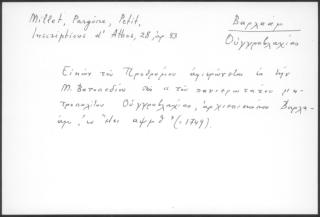 Millet, Pargoire, Petit,
Inscriptions d'Athos, 28, ἀρ 83
Βαρλααμ
Οὑγγροβλαχίας
Εἰκὼν τοῦ Προδρόμου ἀφιερώνεται εἰς τὴν
Μ. Βατοπεδίου παρὰ "τοῦ πανιερωτάτου μη-
τροπολίτου Οὑγγροβλαχίας, ἀρχιεπισκόπου Βαρλα-
ὰμ, αψμθ' (=1749).